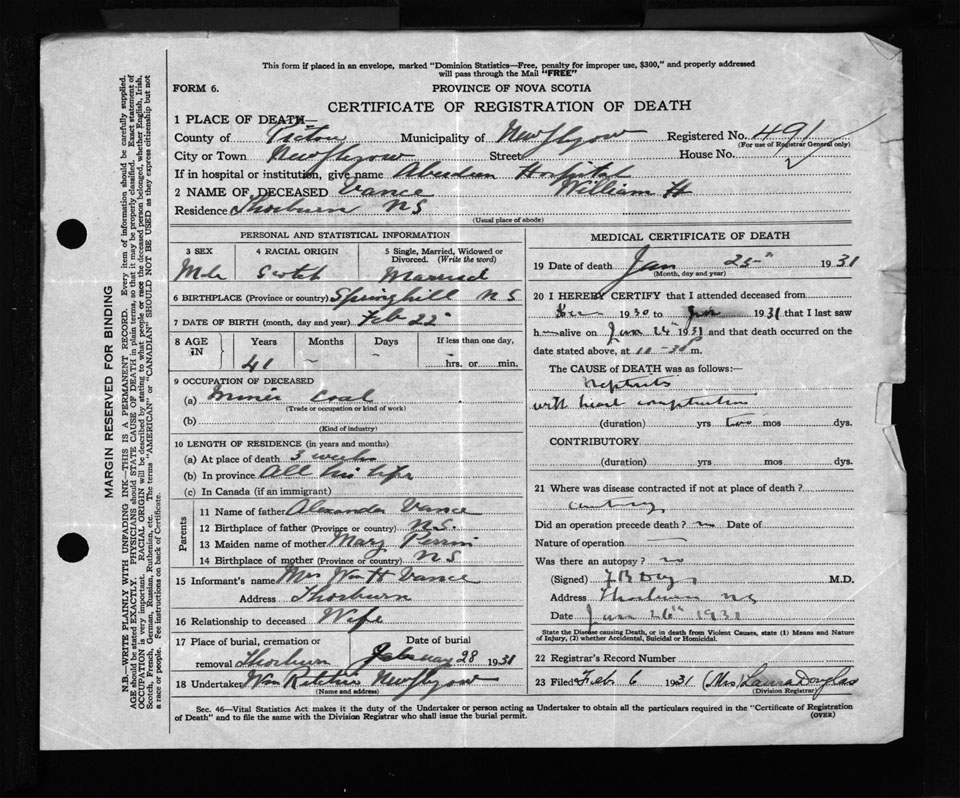 This form if placed in an envelope, marked "Dominion Statistics—Free, penalty for improper use, $300," and properly addressed
will pass through the Mail "FREE"
FORM 6.
PROVINCE OF NOVA SCOTIA
CERTIFICATE OF REGISTRATION OF DEATH
1 PLACE OF DEATH—
County of Pictou Municipality of New Glasgow Registered No. 491
(For use of Registrar General only)
City or Town New Glasgow Street House No.
If in hospital or institution, give name Aberdeen Hospital
2 NAME OF DECEASED Vance William H
Residence Thorburn NS
(Usual place of abode)
PERSONAL AND STATISTICAL INFORMATION
3 SEX 4 RACIAL ORIGIN 5 Single, Married, Widowed or
Divorced. (Write the word)
Male Scotch Married
6 BIRTHPLACE (Province or country) Springhill NS
7 DATE OF BIRTH (month, day and year) Feb 22
8 AGE IN Years Months Days If less than one day,
41 – – hrs. or min.
9 OCCUPATION OF DECEASED
(a) Miner Coal
(Trade or occupation or kind of work)
(b)
(Kind of industry)
10 LENGTH OF RESIDENCE (in years and months)
(a) At place of death 3 weeks
(b) In province All his life
(c) In Canada (if an immigrant)
Parents
11 Name of father Alexander Vance
12 Birthplace of father (Province or country) N.S.
13 Maiden name of mother Mary
14 Birthplace of mother (Province or country) NS
15 Informant's name Mrs Wm H Vance
Address Thorburn
16 Relationship to deceased Wife
17 Place of burial, cremation or Date of burial
removal Thorburn 28 1931
18 Undertaker Wm New Glasgow
(Name and address)
MEDICAL CERTIFICATE OF DEATH
19 Date of death Jan 25th 1931
(Month, day and year)
20 I HEREBY CERTIFY that I attended deceased from
1930 to Jan 1931 that I last saw
h alive on Jan 24th 1931 and that death occurred on the
date stated above, at 11-30 P m.
The CAUSE of DEATH was as follows:—
Nephritis
with heart complications
(duration) yrs two mos dys.
CONTRIBUTORY
(duration) yrs. mos. dys.
21 Where was disease contracted if not at place of death?
Did an operation precede death? no Date of
Nature of operation —
Was there an autopsy? no
(Signed) M.D.
Address Thorburn NS
Date Jan 26th 1931
State the Disease causing Death, or in death from Violent Causes, state (1) Means and Nature
of Injury, (2) whether Accidental, Suicidal or Homicidal.
22 Registrar's Record Number
23 Filed Feb 6 1931 (Mrs) Laura Douglas
(Division Registrar)
Sec. 46—Vital Statistics Act makes it the duty of the Undertaker or person acting as Undertaker to obtain all the particulars required in the "Certificate of Registration
of Death" and to file the same with the Division Registrar who shall issue the burial permit.
(OVER)
MARGIN RESERVED FOR BINDING
N.B.—WRITE PLAINLY WITH UNFADING INK—THIS IS A PERMANENT RECORD. Every item of information should be carefully supplied.
AGE should be stated EXACTLY. PHYSICIANS should STATE CAUSE OF DEATH in plain terms, so that it may be properly classified. Exact statement of
OCCUPATION is very important. RACIAL ORIGIN will be described by stating to what people or race the deceased person belonged, whether English, Irish,
Scotch, French, German, Russian, Ruthenian, etc. The terms "AMERICAN" or "CANADIAN" SHOULD NOT BE USED as they express citizenship but not
a race or people. See instructions on back of Certificate.